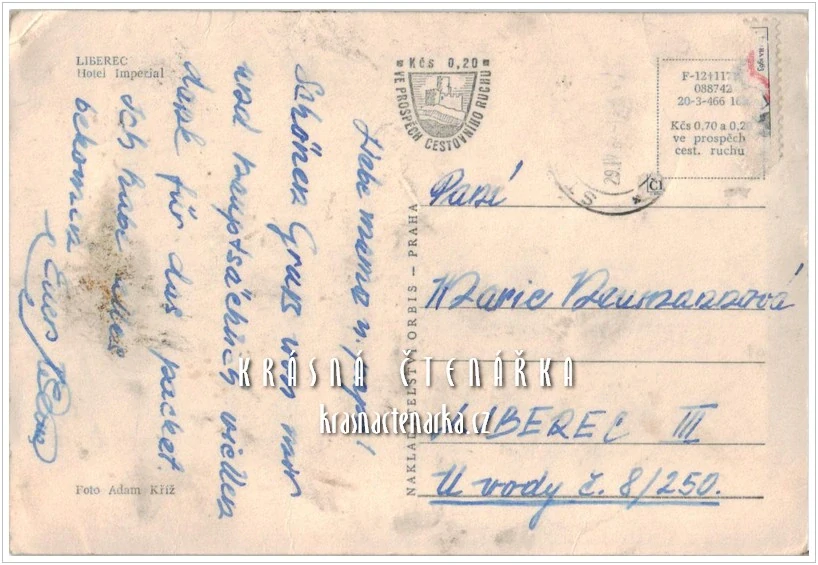 LIBEREC
Hotel Imperial
Liebe mama u. papa!
Schönen Gruß von mir
und hauptsächlich viellen
dank für das packet.
Ich habe alles
bekommen
Euer
Foto Adam Kříž
Kčs 0,20
VE PROSPĚCH CESTOVNÍHO RUCHU
NAKLADATELSTVÍ ORBIS — PRAHA
F-12†117
088742
20-3-466 16
Kčs 0,70 a 0,2
ve prospěch
cest. ruchu
29.IV
Paní
Marie Neumannová
LIBEREC III
U vody č. 8/250.
KRÁSNÁ ČTENÁŘKA
krasnactenarka.cz